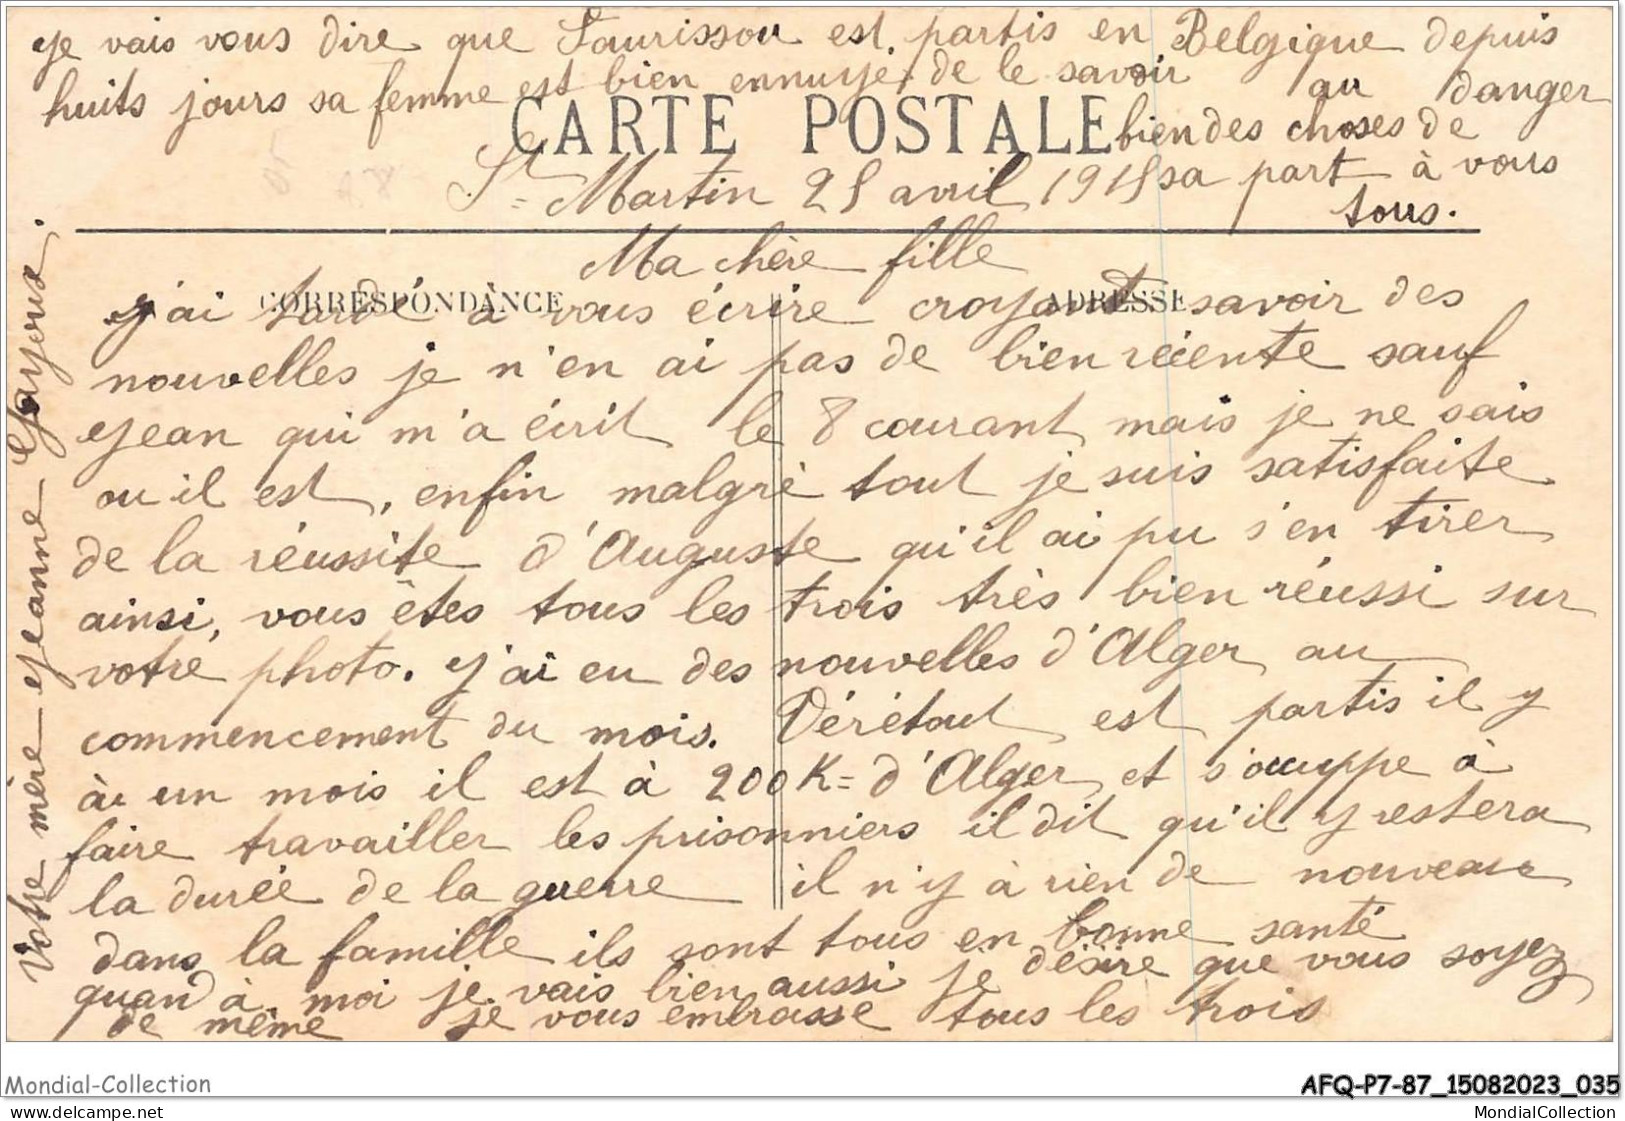 je vais vous dire que Laurissou est partis en Belgique depuis
huits jours sa femme est bien ennuyé de le savoir au danger
CARTE POSTALE
bien des choses de
sa part à vous
tous.
St Martin 25 avril 1915
Ma chère fille
CORRESPONDANCE
ADRESSE
j'ai tardé à vous écrire croyant savoir des
nouvelles je n'en ai pas de bien réçente sauf
Jean qui m'a écrit le 8 courant mais je ne sais
ou il est, enfin malgré tout je suis satisfaite
de la réussite d'Auguste qu'il ai pu s'en tirer
ainsi, vous êtes tous les trois très bien réussi sur
votre photo. j'ai eu des nouvelles d'Alger au
commencement du mois. Dérétout est partis il y
à un mois il est à 200 K= d'Alger et s'occuppe à
faire travailler les prisonniers il dit qu'il y restera
la durée de la guerre il n'y à rien de nouveau
dans la famille ils sont tous en bonne santé
quand à moi je vais bien aussi je désire que vous soyez
de même je vous embrasse tous les trois
Votre mère Jeanne Gayous.
Mondial-Collection
AFQ-P7-87_15082023_035
© www.delcampe.net
MondialCollection